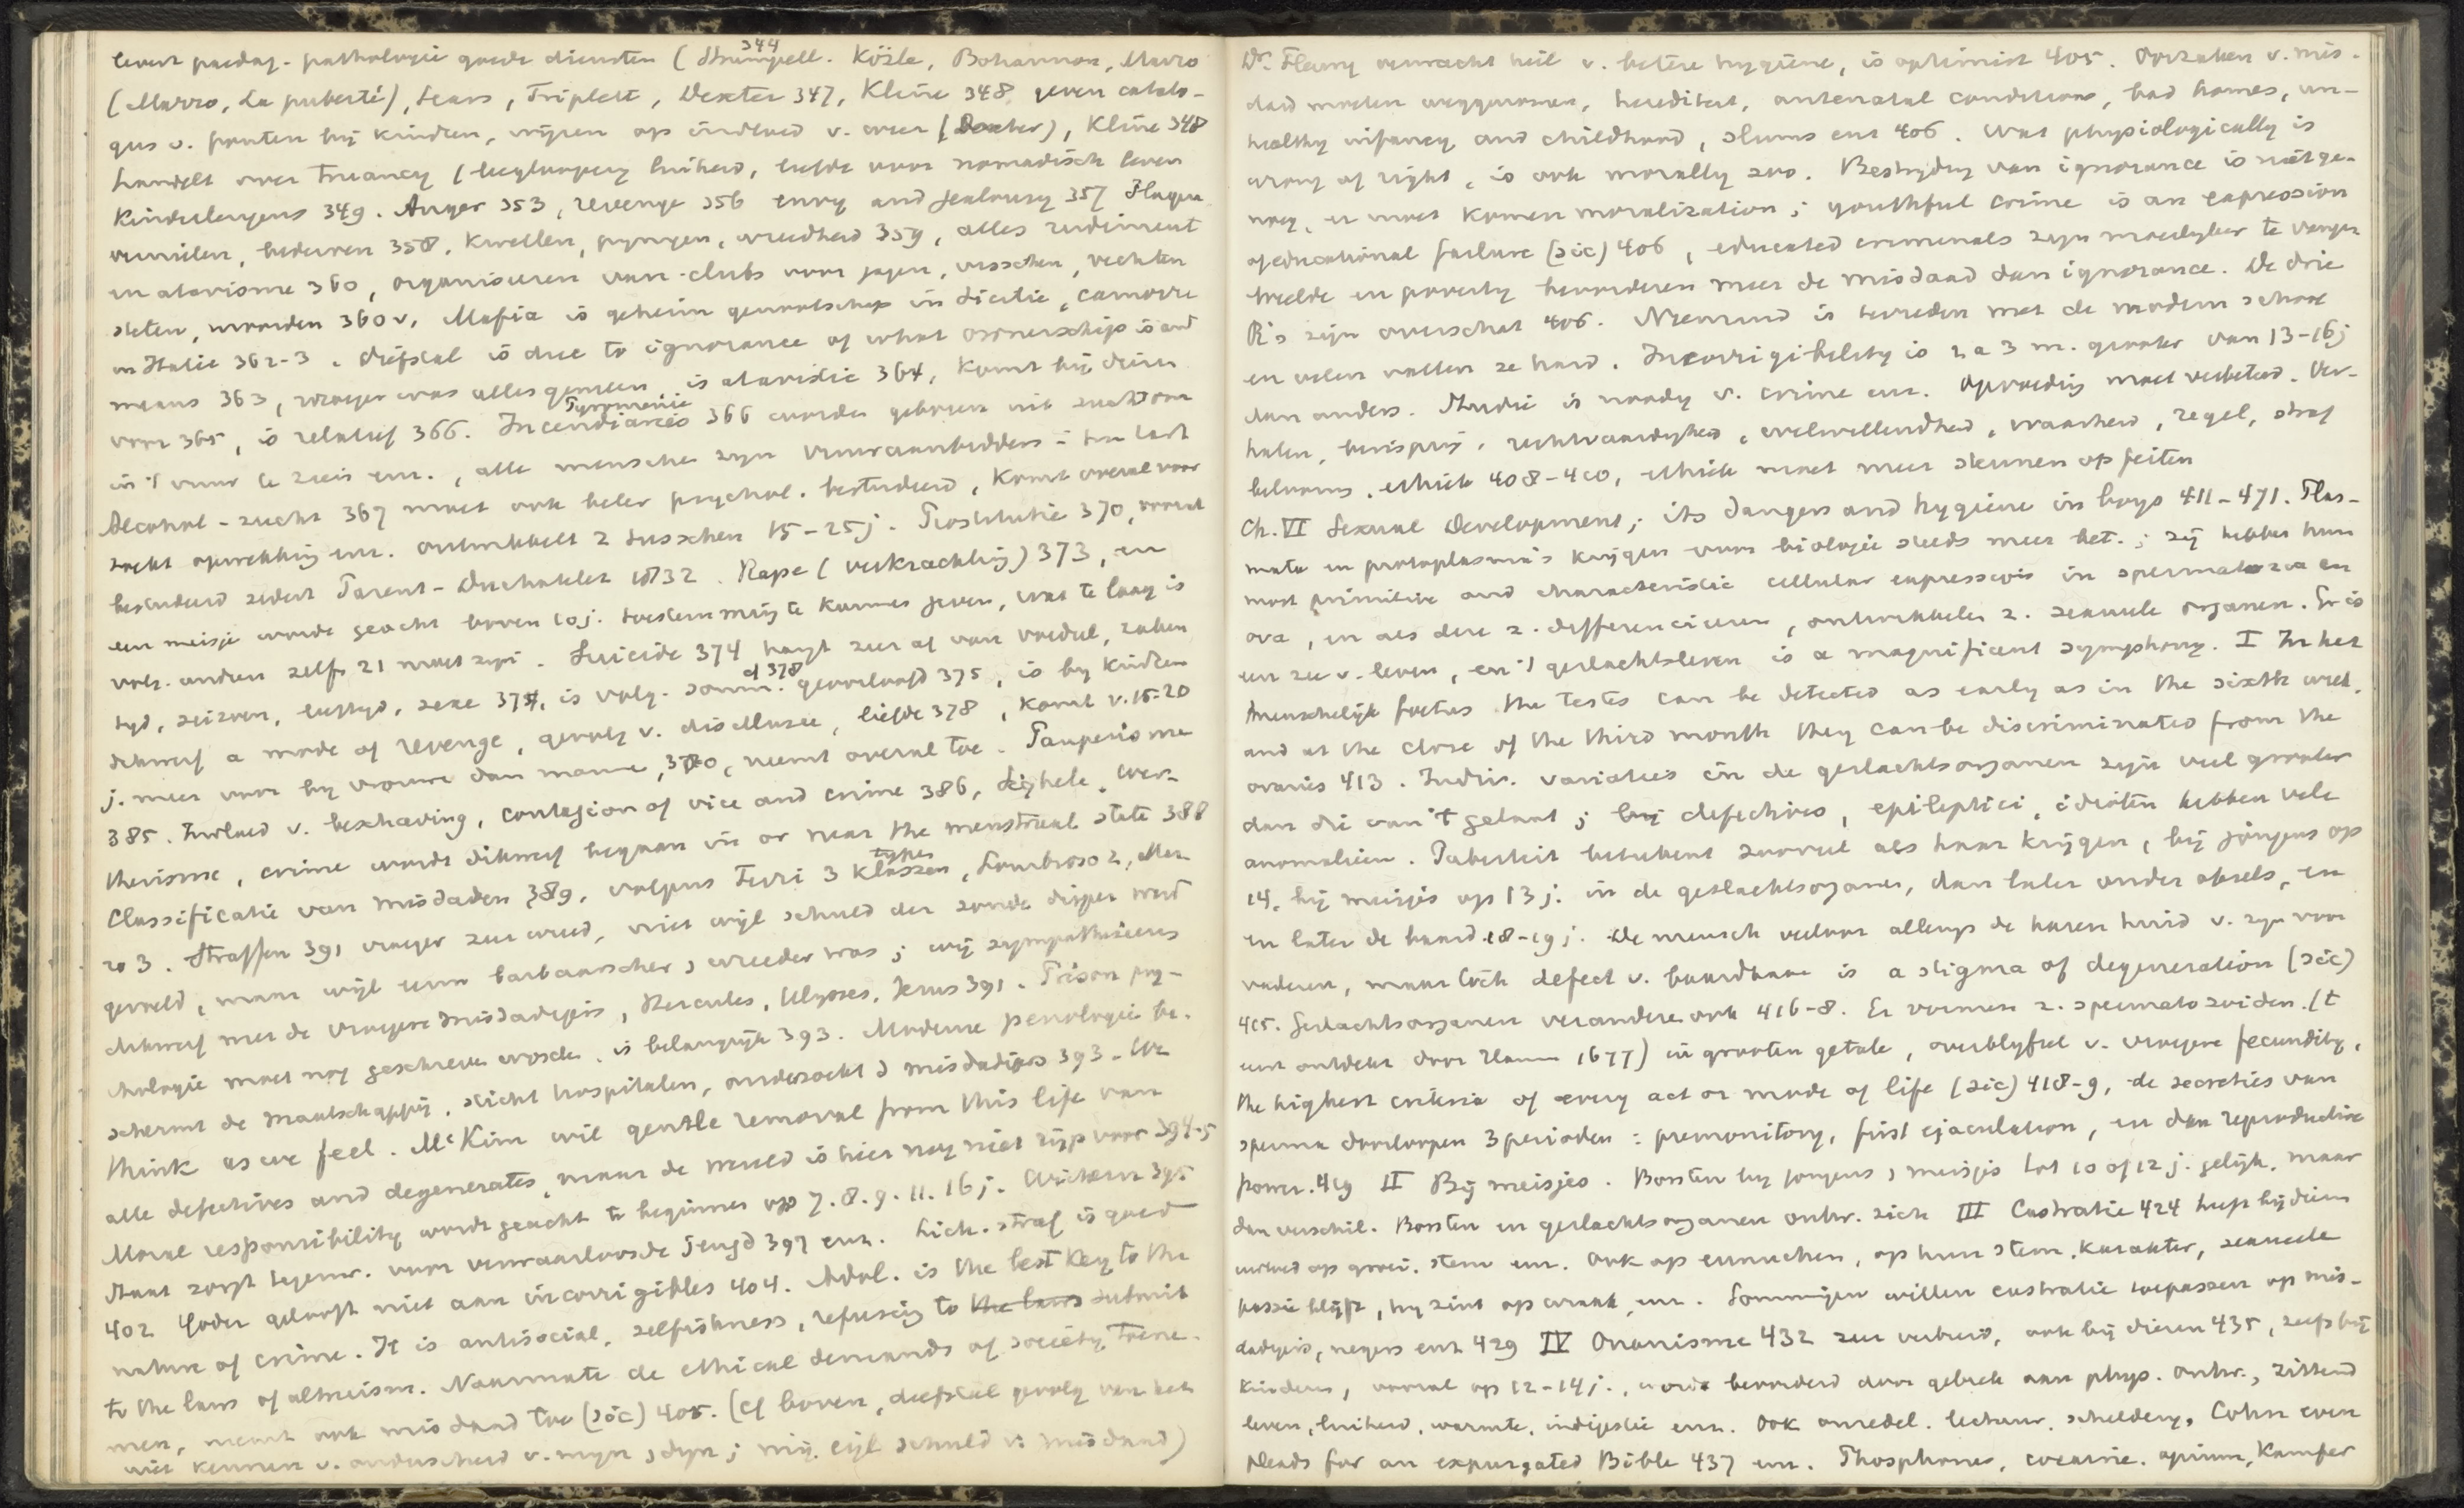 levert paedag. pathologie goede diensten (Strümpell. 344 Közle, Bohannon, Marro
(Marro, La puberté), Sears, Triplett, Dexter 347, Kline 348 geven catalo-
gus v. fouten bij kinderen, wijzen op invloed v. weer (Dexter), Kline 348
handelt over Truancy ( luiheid, liefde voor nomadisch leven
Kinderleugens 349. Anger 353, revenge 356 envy and jealousy 357 Plagen
vernielen, bederven 358, Kwellen, pynigen, wreedheid 359, alles rudiment
en atavisme 360, organiseeren van clubs voor jagen, visschen, vechten
stelen, moorden 360v. Mafia is geheim genootschap in Sicilie, camorre
in Italie 362-3. diefstal is due to ignorance of what ownerschip is and
means 363, vroeger was alles gemeen, is atavistic 364, Komt bij dieren
voor 365, is relatief 366. Incendiaries Pyromanie 366 worden geboren uit zucht om
in 't vuur te zien enz., alle menschen zyn vuuraanbidders in hun hart
Alcohol-zucht 367 moet ook beter psychol. bestudeerd, Komt overal voor
zoekt opwekking enz. ontwikkelt z tusschen 15-25j. Prostitutie 370, vooral
bestudeerd sedert Parent-Duchatelet 1832. Rape (verkrachting) 373, en
een meisje wordt geacht boven 10j. toestemming te kunnen geven, wat te laag is
volg. anderen zelfs 21 moet zyn. Suicide 374 hangt zeer af van voedsel, zaken
tyd, seizoen, leeftyd, sexe 374, is volg. somm. cf 378 geoorloofd 375, is by Kinderen
dikwerf a mode of revenge, gevolg v. disillusie, liefde 378, Komt v. 15-20
j. meer voor by vrouwen dan mannen, 380, neemt overal toe. Pauperisme
385. Invloed v. beschaving, contagion of vice and crime 386, Sighele,
therisme, crime wordt dikwerf begaan in or near the menstrual state 388
Classificatie van misdaden 389, volgens Ferri 3 Klassen types, Lombroso 2, Mar-
ro 3. Straffen 391 vroeger zeer wreed, niet wijl schuld der zonde dieper werd
gevoeld, maar wijl men barbaarscher, wreeder was; wij sympathiseeren
dikwerf met de vroegere misdadigers, Hercules, Ulysses, Jezus 391. Prison psy-
chologie moet nog geschreven worden, is belangrijk 393. Moderne penologie be-
schermt de maatschappij, sticht hospitalen, onderzoekt d misdadigers 393. We
think as we feel. McKim wil gentle removal from this life van
alle defectives and degenerates, maar de wereld is hier nog niet rijp voor 394-5
Moral responsibility wordt geacht te beginnen op 7. 8. 9. 11. 16 j. Wichern 395
Staat zorgt tegenw. voor verwaarloosde Jeugd 397 enz. Lich. straf is goed
402 Yoder gelooft niet aan incorrigibles 404. Adol. is the best Key to the
nature of crime. It is antisocial, selfishness, refusing to the laws submit
to the laws of altruism. Naarmate de ethical demands of society toene-
men, neemt ook misdaad toe (sic) 405. (Cf boven, diefstal gevolg van het
niet kennen v. onderscheid v. myn, dyn; schuld v. misdaad)
Dr. Fleury verwacht heil v. betere hygiëne, is optimist 405. Oorzaken v. mis-
daad moeten weggenomen, herediteit, antenatal conditions, bad homes, un-
healthy infancy and childhood, slums enz 406. Wat physiologically is
wrong of right, is ook morally zoo. Bestryding van ignorance is niet ge-
noeg, er moet Komen moralization; youthful crime is an expression
of educational failure (sic) 406, educated criminals zyn moeilyker te vangen
weelde en poverty bevorderen meer de misdaad dan ignorance. De drie
R's zyn overschat 406. Niemand is tevreden met de modern school
en velen vallen ze hard. Incorrigibility is 2 a 3 m. grooter van 13-16j
dan anders. Studie is noodig v. crime enz. Opvoeding moet verbeterd. Ver-
halen, berisping, rechtvaardigheid, welwillendheid, waarheid, regel, straf
belooning, ethiek 408-410, ethiek moet meer steunen op feiten
Ch. VI Sexual Development; its dangers and hygiene in boys 411-471. Plas-
mata en protoplasma's Krijgen voor biologie steeds meer bet.; zij hebben hun
most primitive and characteristic cellular expression in spermatozoa en
ova, en als deze z. differencieeren, ontwikkelen z. sexueele organen. Er is
een zee v. leven, en 't geslachtsleven is a magnificent symphony. I In het
menschelijk foetus the testes can be detected as early as in the sixth week,
and at the close of the third month they can be discriminated from the
ovaries 413. Indiv. variaties in de geslachtsorganen zyn veel grooter
dan die van 't gelaat; bij defectives, epileptici, idioten hebben vele
anomalieen. Puberteit beteekent zooveel als haar krijgen, bij jongens op
14, bij meisjes op 13 j. in de geslachtsorganen, dan later onder oksels, en
en later de baard 18-19 j. De mensch verloor allengs de haren huid v. zyn voor
vaderen, maar toch defect v. baardhaar is a stigma of degeneration (sic)
415. Geslachtsorganen veranderen ook 416-8. Er vormen z. spermatozoiden. (t
eerst ontdekt door Hamm 1677) in grooten getale, overblyfsel v. vroegere fecundity,
the highest criteria of every act or mode of life (sic) 418-9, de secreties van
sperma doorloopen 3 perioden: premonitory, first ejaculation, en dan reproductive
power. 419 II Bij meisjes. Borsten by jongens, meisjes tot 10 of 12 j. gelijk, maar
dan verschil. Borsten en geslachtsorganen ontw. zich III Castratie 424 heeft bij dieren
invloed op groei, stem enz. Ook op eunuchen, op hun stem, Karakter, sexueele
passie blijft, hy zint op wraak, enz. Sommigen willen castratie toepassen op mis-
dadigers, negers enz 429 IV Onanisme 432 zeer verbreid, ook bij dieren 435, zelfs bij
Kinderen, vooral op 12-14 j., wordt bevorderd door gebrek aan phys. ontw., zittend
leven, luiheid, warmte, indigestie enz. Ook onzedel. lectuur, schildery, Cohn even
pleads for an expurgated Bible 437 enz. Phosphorus, cocaine, opium, Kamfer